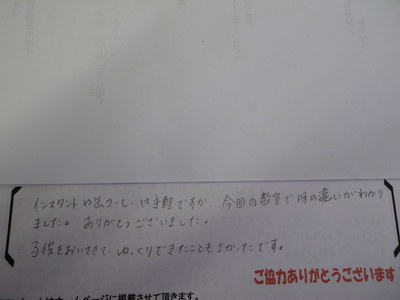 インスタントや缶コーヒーは手軽ですが、今回の教室で味の違いがわかり
ました。ありがとうございました。
子供をおいてきて、ゆっくりできたこともよかったです。
ご協力ありがとうございます
ームページに掲載させて頂きます。